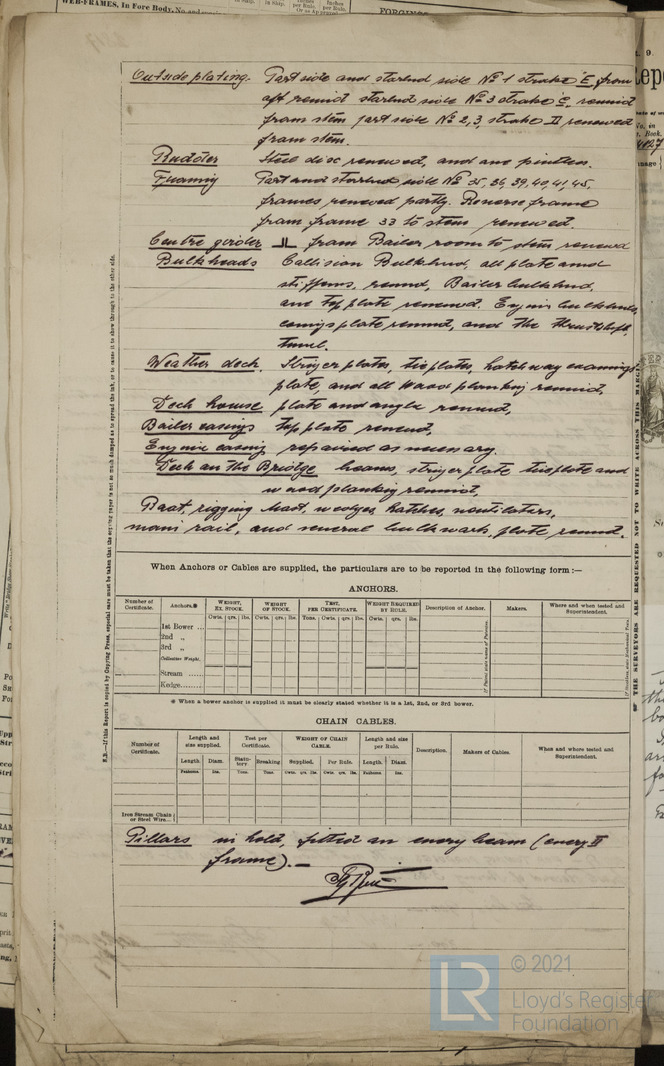 WEB-FRAMES, In Fore Body,
FORGINGS
Outside plating. Port side and starbd side No 1 strake E, from
aft remnid starbd side No 3 strake C, remnid
from stem port side No 2, 3, strake D renewed
from stem.
Rudder Steel disc renewed, and one pintles.
Framing Port and starbd side No 35, 36, 39, 40, 41, 45,
frames renewed partly. Reverse frame
from frame 33 to stem renewed.
Centre girder from Boiler room to stem renewed
Bulkheads Collision Bulkhead, all plate and
stiffners, renewd, Boiler bulkhead,
one top plate renewed. Engine bulkhead,
casings plate renewd, and the thrustshaft
tunnel.
Weather deck. Stringer plates, tieplates, hatchway coamings
plate, and all wood planking renewid,
Deck house plate and angle renewd,
Boiler casings top plate renewd,
Engine casing repaired as necessary.
Deck on the Bridge beams, stringer plate tieplate and
wood planking renewid,
Boat, rigging Mast, wedges, hatches, ventilators,
main rail, and several bulkwark, plate renewd.
When Anchors or Cables are supplied, the particulars are to be reported in the following form :—
ANCHORS.
Number of Certificate. Anchors.* WEIGHT, EX. STOCK. WEIGHT OF STOCK. TEST, PER CERTIFICATE. WEIGHT REQUIRED BY RULE. Description of Anchor. Makers. Where and when tested and Superintendent.
Cwts. qrs. lbs. Cwts. qrs. lbs. Tons. Cwts. qrs. lbs. Cwts. qrs. lbs.
1st Bower ...
2nd „
3rd „
Collective Weight.
Stream
Kedge
* When a bower anchor is supplied it must be clearly stated whether it is a 1st, 2nd, or 3rd bower.
CHAIN CABLES.
Number of Certificate. Length and size supplied. Test per Certificate. WEIGHT OF CHAIN CABLE. Length and size per Rule. Description. Makers of Cables. When and where tested and Superintendent.
Length. Diam. Statutory. Breaking Supplied. Per Rule. Length. Diam.
Fathoms Ins. Tons. Tons. Cwts. qrs. lbs. Cwts. qrs. lbs. Fathoms Ins.
Iron Stream Chain
or Steel Wire...
Pillars in hold, fitted on every beam (every II
frame). —
N.B.—If this Report is copied by Copying Press, especial care must be taken that the copying paper is not so much damped as to spread the ink, or to cause it to show through to the other side.
THE SURVEYORS ARE REQUESTED NOT TO WRITE ACROSS THIS MARGIN
© 2021
LR Lloyd's Register
Foundation